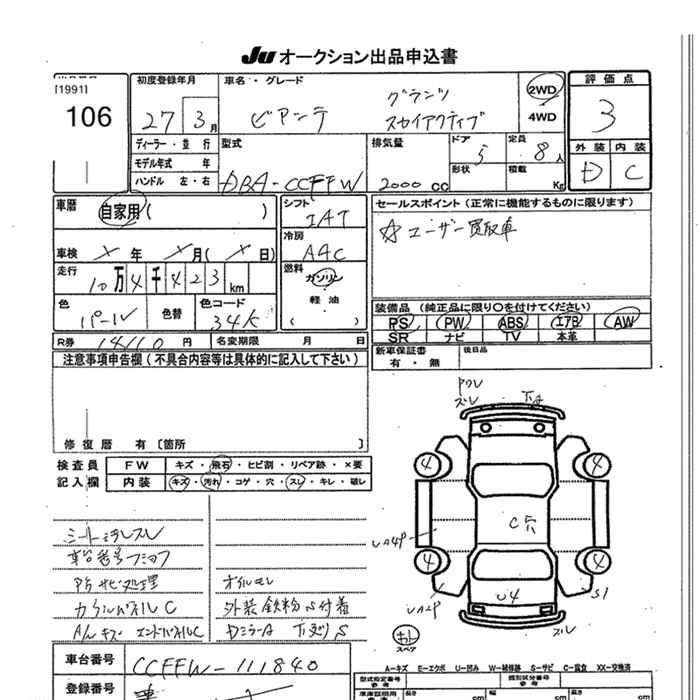 JU オークション出品申込書
[1991]
106
初度登録年月
27 3月
車名・グレード
ビアンテ
グランツ
スカイアクティブ
2WD
4WD
評価点
3
外装 内装
D C
ディーラー・並行
モデル年式 年
ハンドル 左・右
型式
DBA-CCFFW
排気量
2000 CC
ドア
5
形状
定員
8人
積載
Kg
車歴
自家用( )
車検 × 年 × 月( × 日)
走行
10万4千423km
色
パール
色替
色コード
34K
シフト
IAT
冷房
AAC
燃料
ガソリン
軽油
( )
セールスポイント(正常に機能するものに限ります)
☆ユーザー買取車
装備品(純正品に限り○を付けてください)
PS PW ABS エアB AW
SR ナビ TV 本革
R券 14110円 名変期限 月 日
新車保証書
有・無
後日品
注意事項申告欄(不具合内容等は具体的に記入して下さい)
修復歴 有〔箇所 〕
検査員 FW キズ・飛石・ヒビ割・リペア跡・×要
記入欄 内装 キズ・汚れ・コゲ・穴・スレ・キレ・破レ
シート
車台番号
サビ処理
C
オイルモレ
外装鉄粉 付着
A/Wキズ エンドパネルC
DミラーA 下廻りS
スレ
4 4
C穴
4 4
U4
S1
スレ
スペア
車台番号 CCFFW-111840
登録番号
A-キズ E-エクボ U-凹み W-補修跡 S-サビ C-腐食 XX-交換済
型式指定番号
類別区分番号
長さ cm 幅 cm 高さ cm